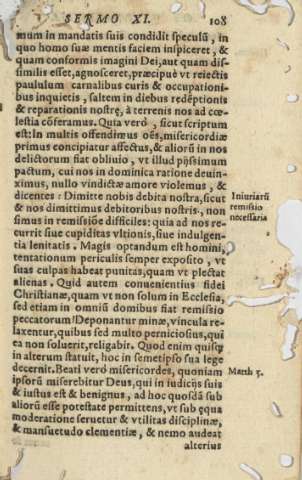 SERMO XI. 108
mum in mandatis suis condidit speculũ, in
quo homo suæ mentis faciem inspiceret, &
quam conformis imagini Dei, aut quam dis-
similis esset, agnosceret, præcipuè vt reiectis
paululum carnalibus curis & occupationi-
bus inquietis, saltem in diebus redẽptionis
& reparationis nostrę, à terrenis nos ad cœ-
lestia cõferamus. Quia verò, sicut scriptum
est: In multis offendimus oẽs, misericordiæ
primus concipiatur affectus, & aliorũ in nos
delictorum fiat obliuio, vt illud pijssimum
pactum, cui nos in dominica ratione deuin-
ximus, nullo vindictæ amore violemus, &
dicentes: Dimitte nobis debita nostra, sicut
& nos dimittimus debitoribus nostris, non
simus in remissiõe difficiles: quia ad nos re-
currit siue cupiditas vltionis, siue indulgen-
tia lenitatis. Magis optandum est homini,
tentationum periculis semper exposito, vt
suas culpas habeat punitas, quam vt plectat
alienas. Quid autem conuenientius fidei
Christianæ, quam vt non solum in Ecclesia,
sed etiam in omniũ domibus fiat remissio
peccatorum? Deponantur minæ, vincula re-
laxentur, quibus sed multo perniciosius, qui
ea non soluerit, religabit. Quod enim quisq;
in alterum statuit, hoc in semetipso sua lege
decernit. Beati verò misericordes, quoniam
ipsorũ miserebitur Deus, qui in iudicijs suis
& iustus est & benignus, ad hoc quosdã sub
aliorũ esse potestate permittens, vt sub ęqua
moderatione seruetur & vtilitas disciplinæ,
& mansuetudo clementiæ, & nemo audeat
alterius
Iniuriarũ
remissio
necessaria
Matth 5.